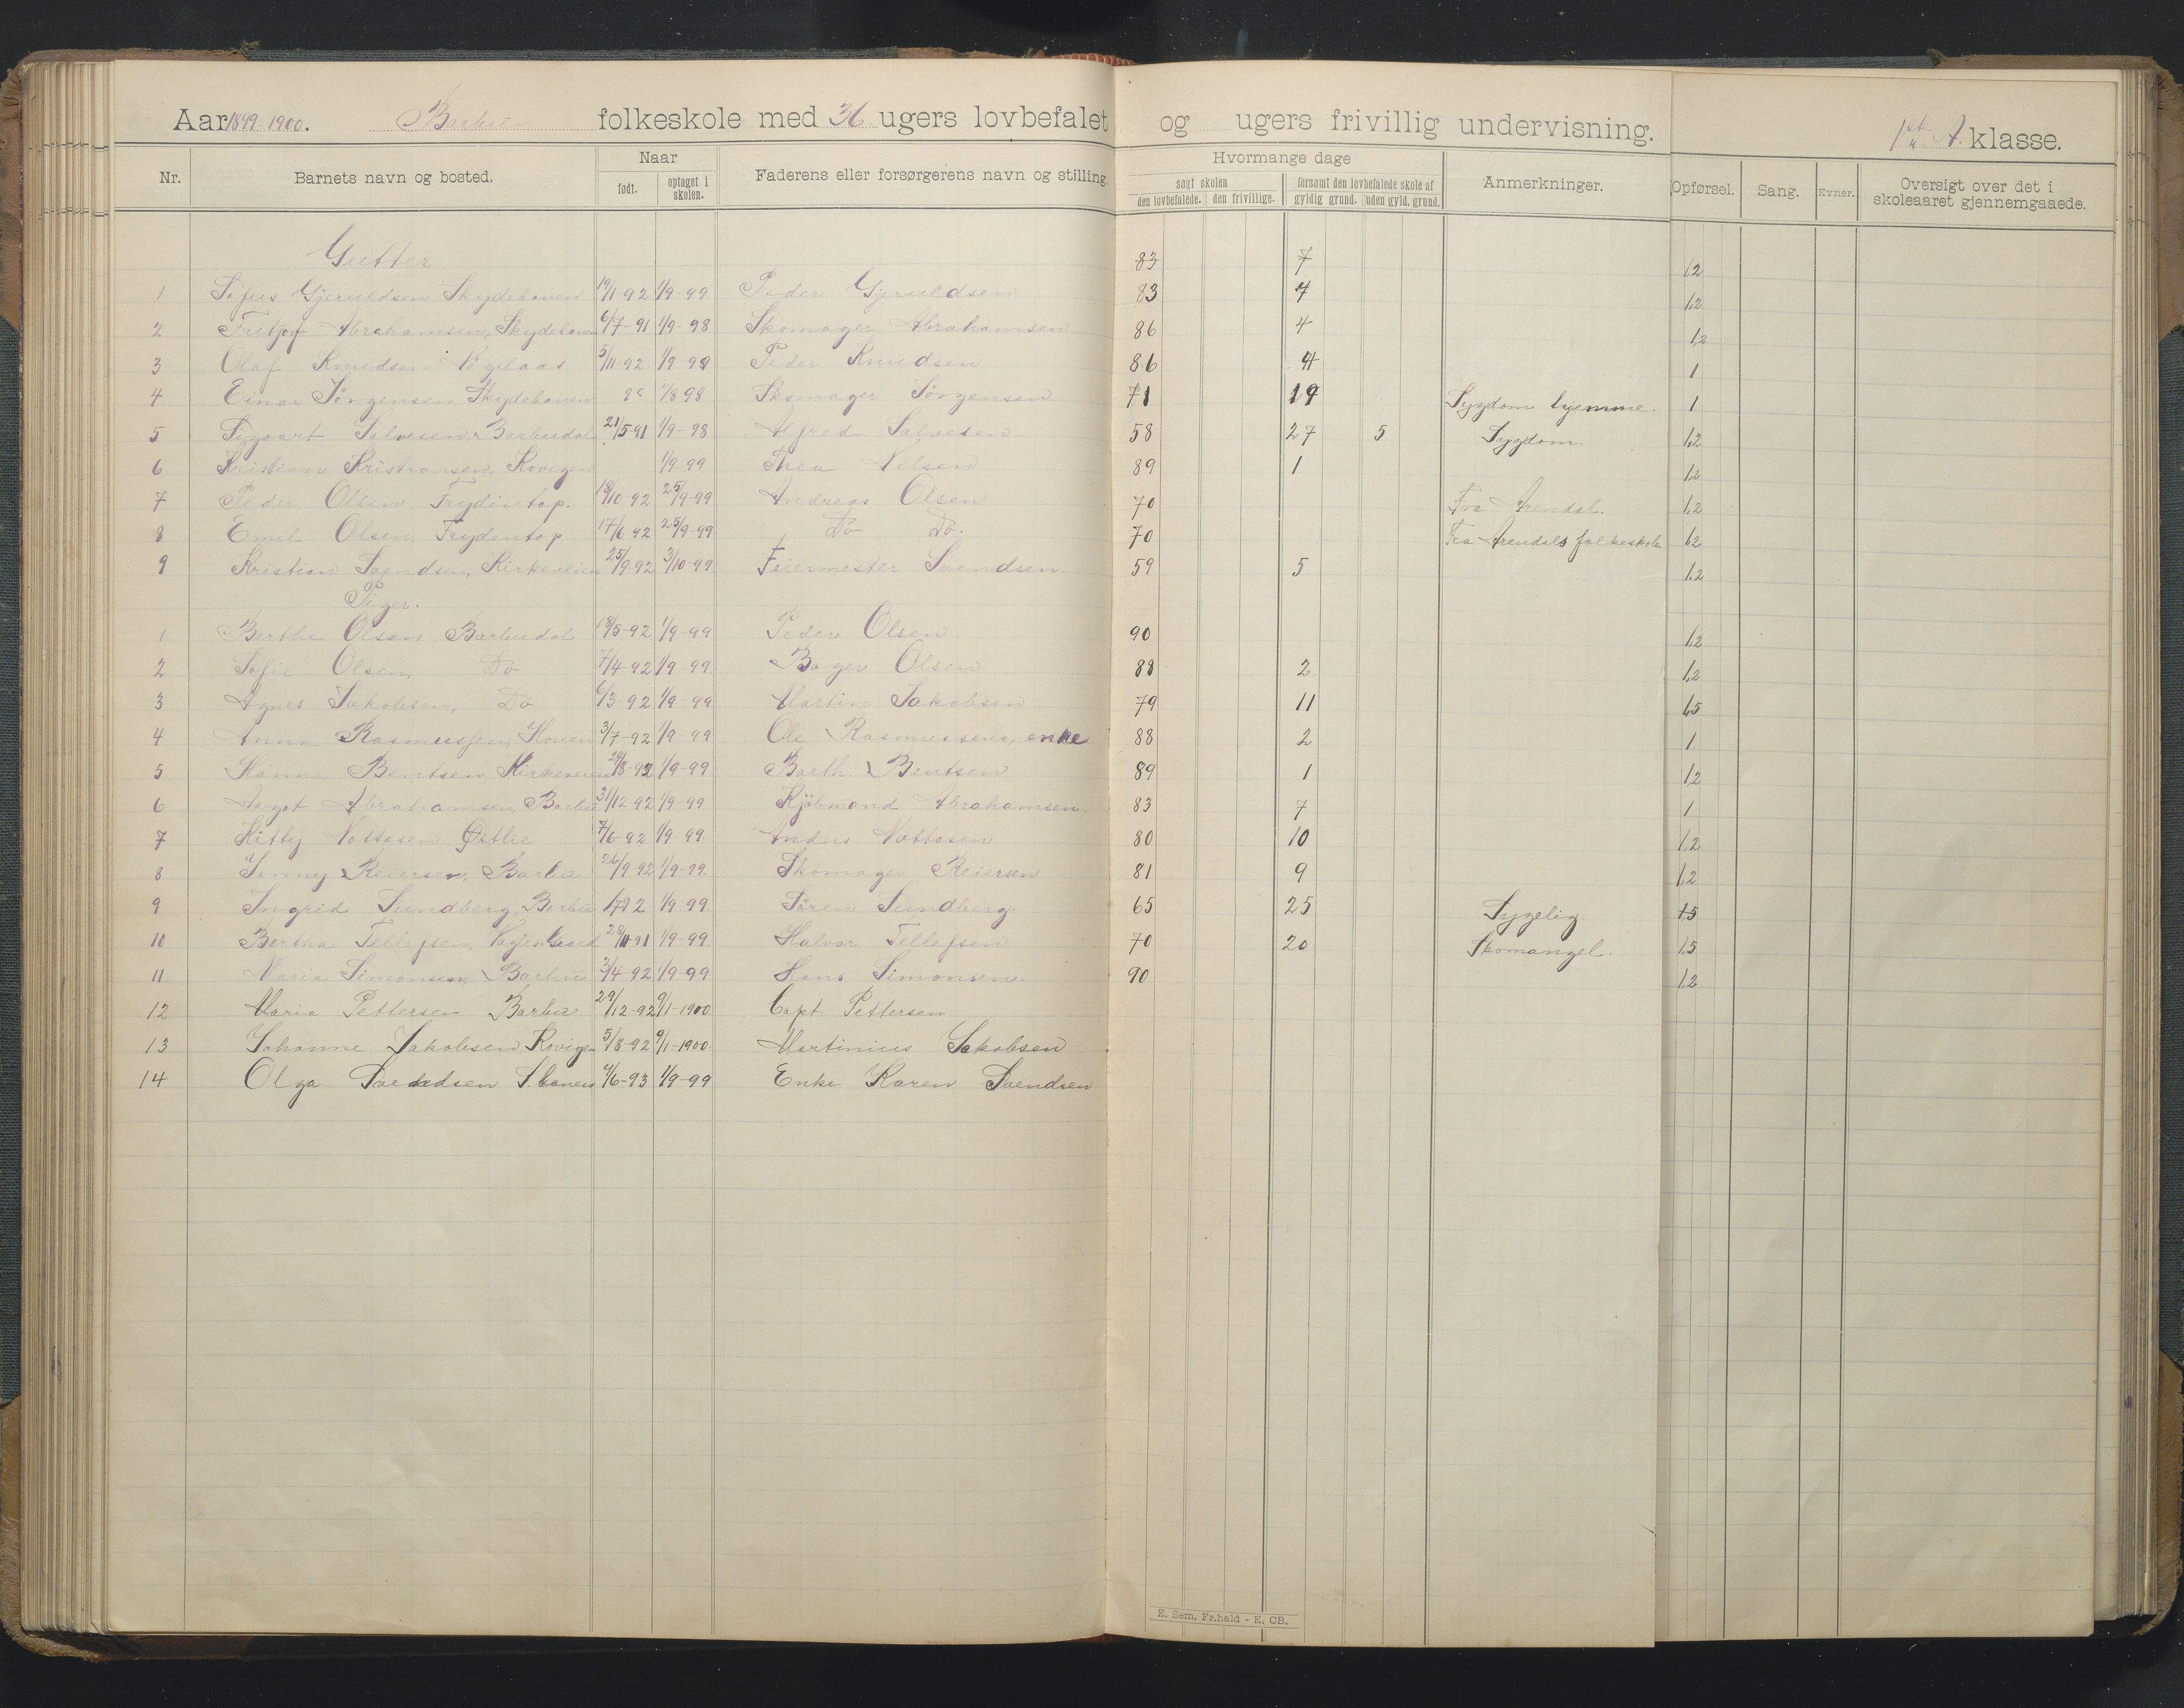 Aar 1899-1900. Barbu folkeskole med 36 ugers lovbefalet og ugers frivillig undervisning. 1ste A. klasse.
Nr. Barnets navn og bosted. Naar Faderens eller forsørgerens navn og stilling. Hvormange dage Anmerkninger. Opførsel. Sang. Evner. Oversigt over det i skoleaaret gjennemgaaede.
født. optaget i skolen. søgt skolen forsømt den lovbefalede skole af
den lovbefalede. den frivillige. gyldig grund. uden gyld. grund.
Gutter 83 7 1,2
1 Sofus Gjeruldsen Skydebanen 19/11-92 1/9-99 Peder Gjeruldsen 83 7 1,2
2 Fritjof Abrahamsen, Skydebanen 6/7-91 1/9-98 Skomager Abrahamsen 86 4 1,2
3 Olaf Knudsen 5/11-92 1/9-99 Peder Knudsen 86 4 1
4 Einar Jörgensen, Skydebanen Skomager Jörgensen 71 19 Sygdom hjemme. 1
5 Sigvart Salvesen, Barbudal 21/5-91 1/9-98 Alfred Salvesen 58 27 5 Sygdom. 1,2
6 Kristian Kristiansen, Kovigen 1/9-99 Thea Nilsen 89 1 1,2
7 Peder Olsen Frydentop. 18/10-92 25/9-99 Andreas Olsen 70 Fra Arendal. 1,2
8 Emil Olsen, Frydentop 17/6-92 25/9-99 Do Do. 70 Fra Arendals folkeskole 1,2
9 Kristian Svendsen, Kirkeveien 25/9-92 3/10-99 Feiermester Svendsen. 59 5 1,2
Piger.
1 Berthe Olsen Barbudal 18/5-92 1/9-99 Peder Olsen 90 1,2
2 Sofie Olsen, Do 7/4-92 1/9-99 Bager Olsen 88 2 1,2
3 Agnes Jakobsen, Do 6/3-92 1/9-99 Martin Jakobsen 79 11 1,5
4 Anna Rasmussen, Houen 3/7-92 1/9-99 Ole Rasmussens, enke 88 2 1
5 Hanne Bentsen Kirkeveien 24/8-92 1/9-99 Barth. Bentsen 89 1 1,2
6 Aagot Abrahamsen, Barbu 31/12-92 1/9-99 Kjöbmand Abrahamsen. 83 7 1
7 Kitty Østlie 7/6-92 1/9-99. Anders 80 10 1,2
8 Jenny Reiersen, Barbu 26/9-92 1/9-99. Skomager Reiersen 81 9 1,2
9 Ingrid Sundberg, Barbu 1/9-99 Sören Sundberg. 65 25 Sygelig. 1,5
10 Bertha Tellefsen, 28/11-91 1/9-99. Halvor Tellefsen 70 20 Skomangel. 1,5
11 Maria Simonsen, Barbu 3/4-92 1/9-99 Hans Simonsen. 90 1,2
12 Maria Pettersen Barbu 29/12-92 9/1-1900. Capt. Pettersen
13 Johanne Jakobsen, Kovigen 5/8-92 9/1-1900. Martinius Jakobsen
14 Olga Svendsen S.banen 4/6-93 1/9-99 Enke Karen Svendsen
E. Sem, Fr.hald - E. CB.